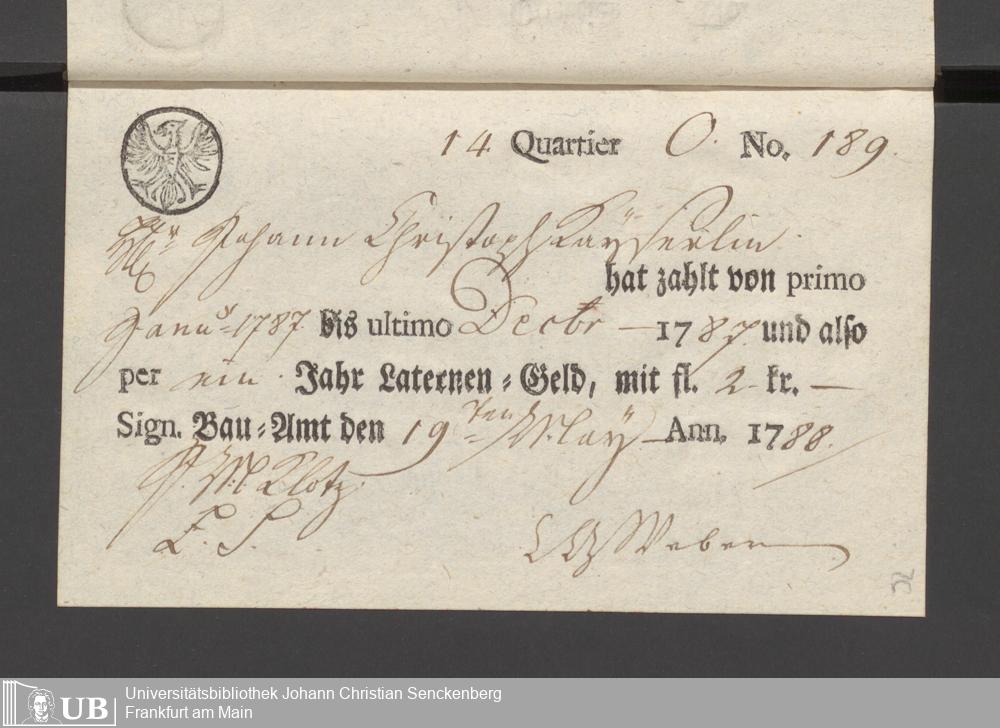 14 Quartier O. No. 189.
Johann Christoph Kayserlin
hat zahlt von primo
Janus 1787 bis ultimo Decbr — 1787 und also
per ein Jahr Laternen-Geld, mit fl. 2 kr. —
Sign. Bau-Amt den 19ten Maÿ — Ann. 1788.
J. M. Klotz.
L. S.
Weber
32
UB Universitätsbibliothek Johann Christian Senckenberg
Frankfurt am Main